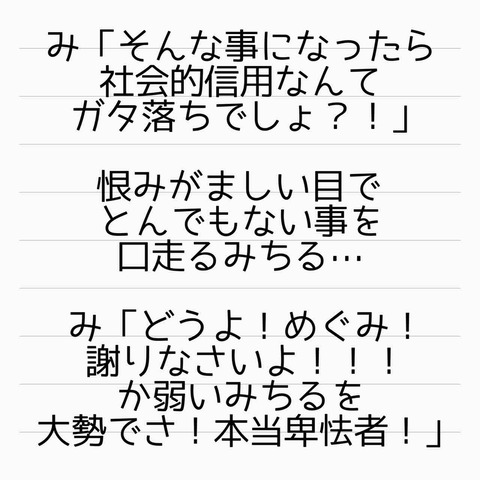 み「そんな事になったら
社会的信用なんて
ガタ落ちでしょ？！」
恨みがましい目で
とんでもない事を
口走るみちる…
み「どうよ！めぐみ！
謝りなさいよ！！！
か弱いみちるを
大勢でさ！本当卑怯者！」